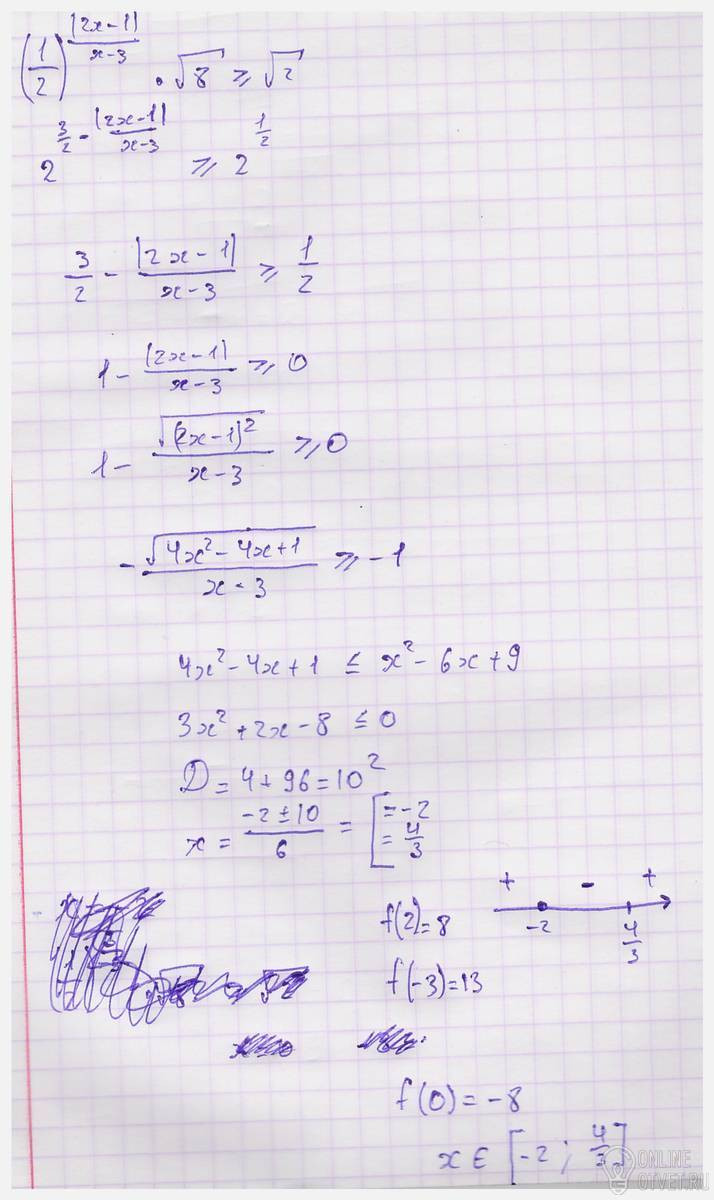 (1/2)^(|2x-1|/(x-3)) · √8 ⩾ √2
2^(3/2 - |2x-1|/(x-3)) ⩾ 2^(1/2)
3/2 - |2x-1|/(x-3) ⩾ 1/2
1 - |2x-1|/(x-3) ⩾ 0
1 - √((2x-1)²)/(x-3) ⩾ 0
-√(4x²-4x+1)/(x-3) ⩾ -1
4x²-4x+1 ≤ x²-6x+9
3x²+2x-8 ≤ 0
D = 4+96 = 10²
x = (-2±10)/6 = [ = -2
= 4/3
+ - +
-2 4/3
f(2)=8
f(-3)=13
f(0)=-8
x ∈ [-2; 4/3]
ONLINE
OTVET.RU